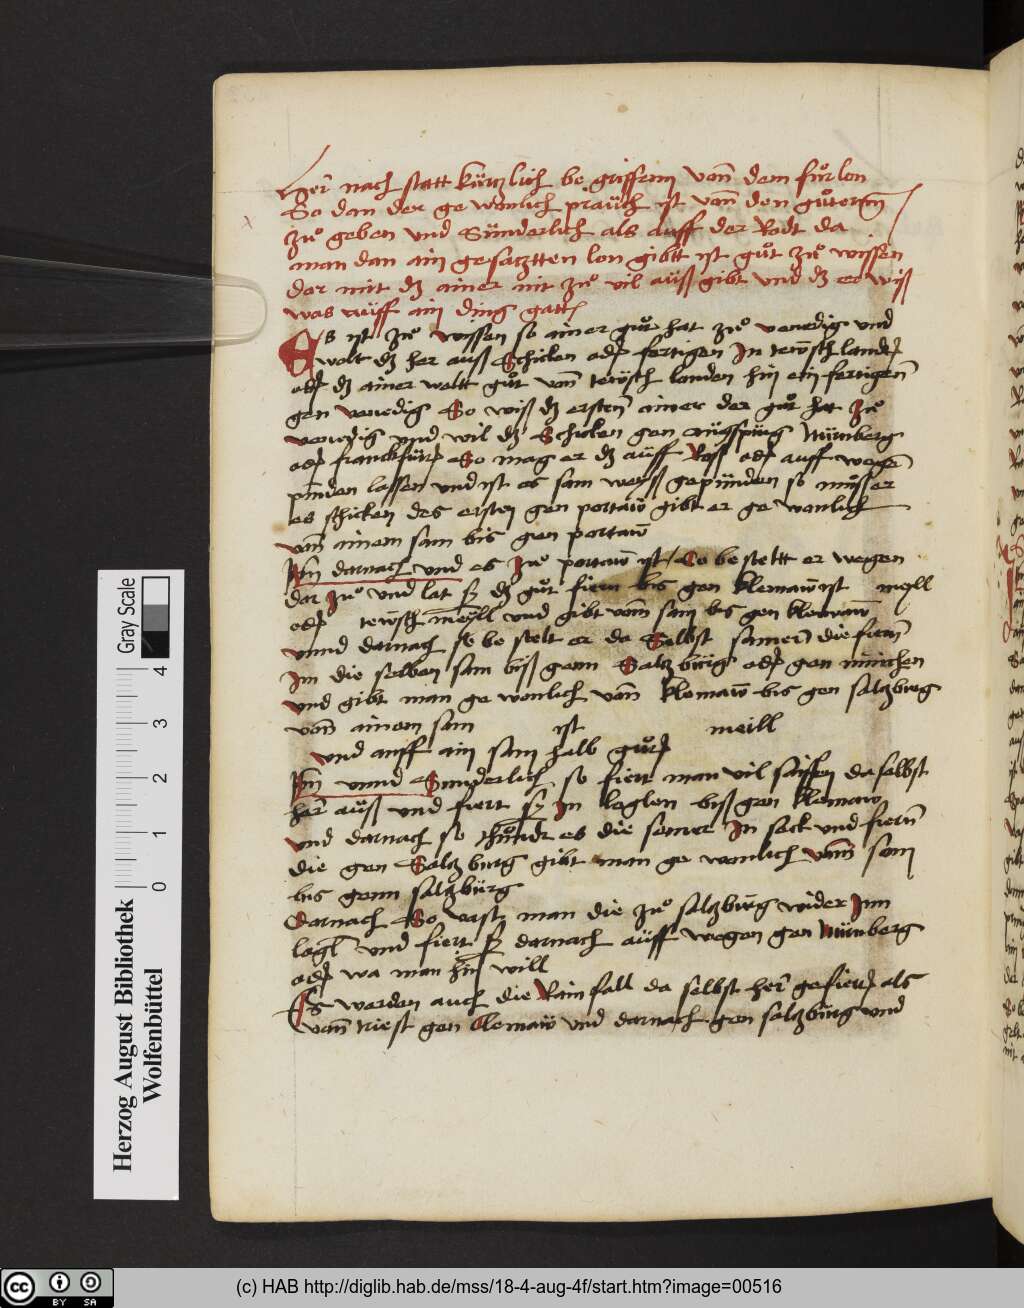 Her nach statt kürtzlich begriffenn vonn dem fuͦrlon
So dan der gewonlich präuch ist vonn den guͦternn
zuͦ geben und Sünderlich als auff der Rodt da
man dan ain gesatztten lon gibtt ist guͦt zuͦ wissen
dar mit dz ainer nit zuͦ vil auß gibt und dz er wiß
was auff ain ding gatt
Es ist zuͦ wissen so ainer guͦt hat zuͦ venedig und
wolt dz her auß Schicken oder fertigen In tewsch landt
oder dz ainer woltt guͦt vonn tewsch landen hin ein fertigenn
gen venedig So wiß dz ersten ainer der guͦt hat zuͦ
venedig und wil dz Schicken gen augspurg Nürmberg
oder franckfürt So mag er dz auff Ross oder auff wegen
pinden lassen und ist es sam weyß gepunden so muͦsser
es schicken des ersten gen portaw gibt er gewonlich
vonn ainem sam bis gen portaw
Itm darnach und es zuͦ portaw ist / So besteltt er wegen
dar zuͦ und lat sy dz guͦt fieren bis gen klemaw ist meyll
oder tewsch meyll und gibt vonn sam bis gen klemaw
unnd darnach so bestelt er da Selbst samer die fieren
Im die selben sam biß genn Saltzburg oder gen minchen
und gibt man gewonlich vonn klemaw bis gen saltzburg
vonn ainem sam ist meill
und auff ain sam halb guͦt
Itm unnd Sunderlich so fiert man vil saiffen daselbst
her auß und fiert sy In laglen biß gen klemaw
und darnach so es die somer In sack und fieren
die gen Saltzburg gibt man gewonlich vonn som
bis genn saltzbürg
Darnach So vast man die zuͦ saltzbürg wider Inn
lagl und fiert sy darnach auff wegen gen Nürmberg
oder wa man hin will
Es werden auch die Rainfall da selbst her gefiert als
vonn triest gen Clemaw und darnach gen saltzburg und
Herzog August Bibliothek
Wolfenbüttel
Gray Scale
0 1 2 3 4
cc BY SA
(c) HAB http://diglib.hab.de/mss/18-4-aug-4f/start.htm?image=00516